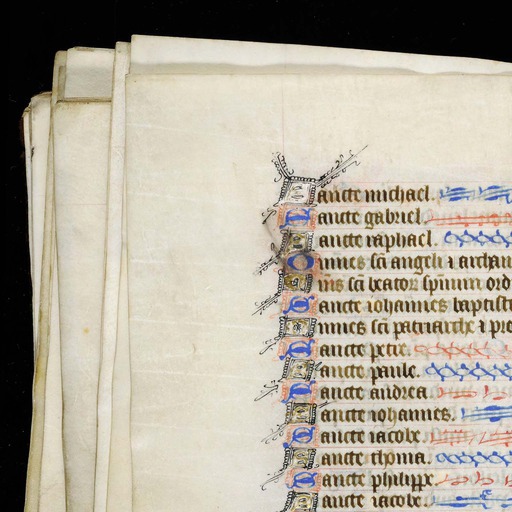 Sancte michael.
Sancte gabriel.
Sancte raphael.
Omnes sci angeli ⁊ archan
Oms sci beator spirituum ord
Sancte iohannes baptiste
Omnes sci patriarche ⁊ pro
Sancte petre.
Sancte paule.
Sancte andrea.
Sancte iohannes.
Sancte iacobe.
Sancte thoma.
Sancte philippe.
Sancte iacobe.